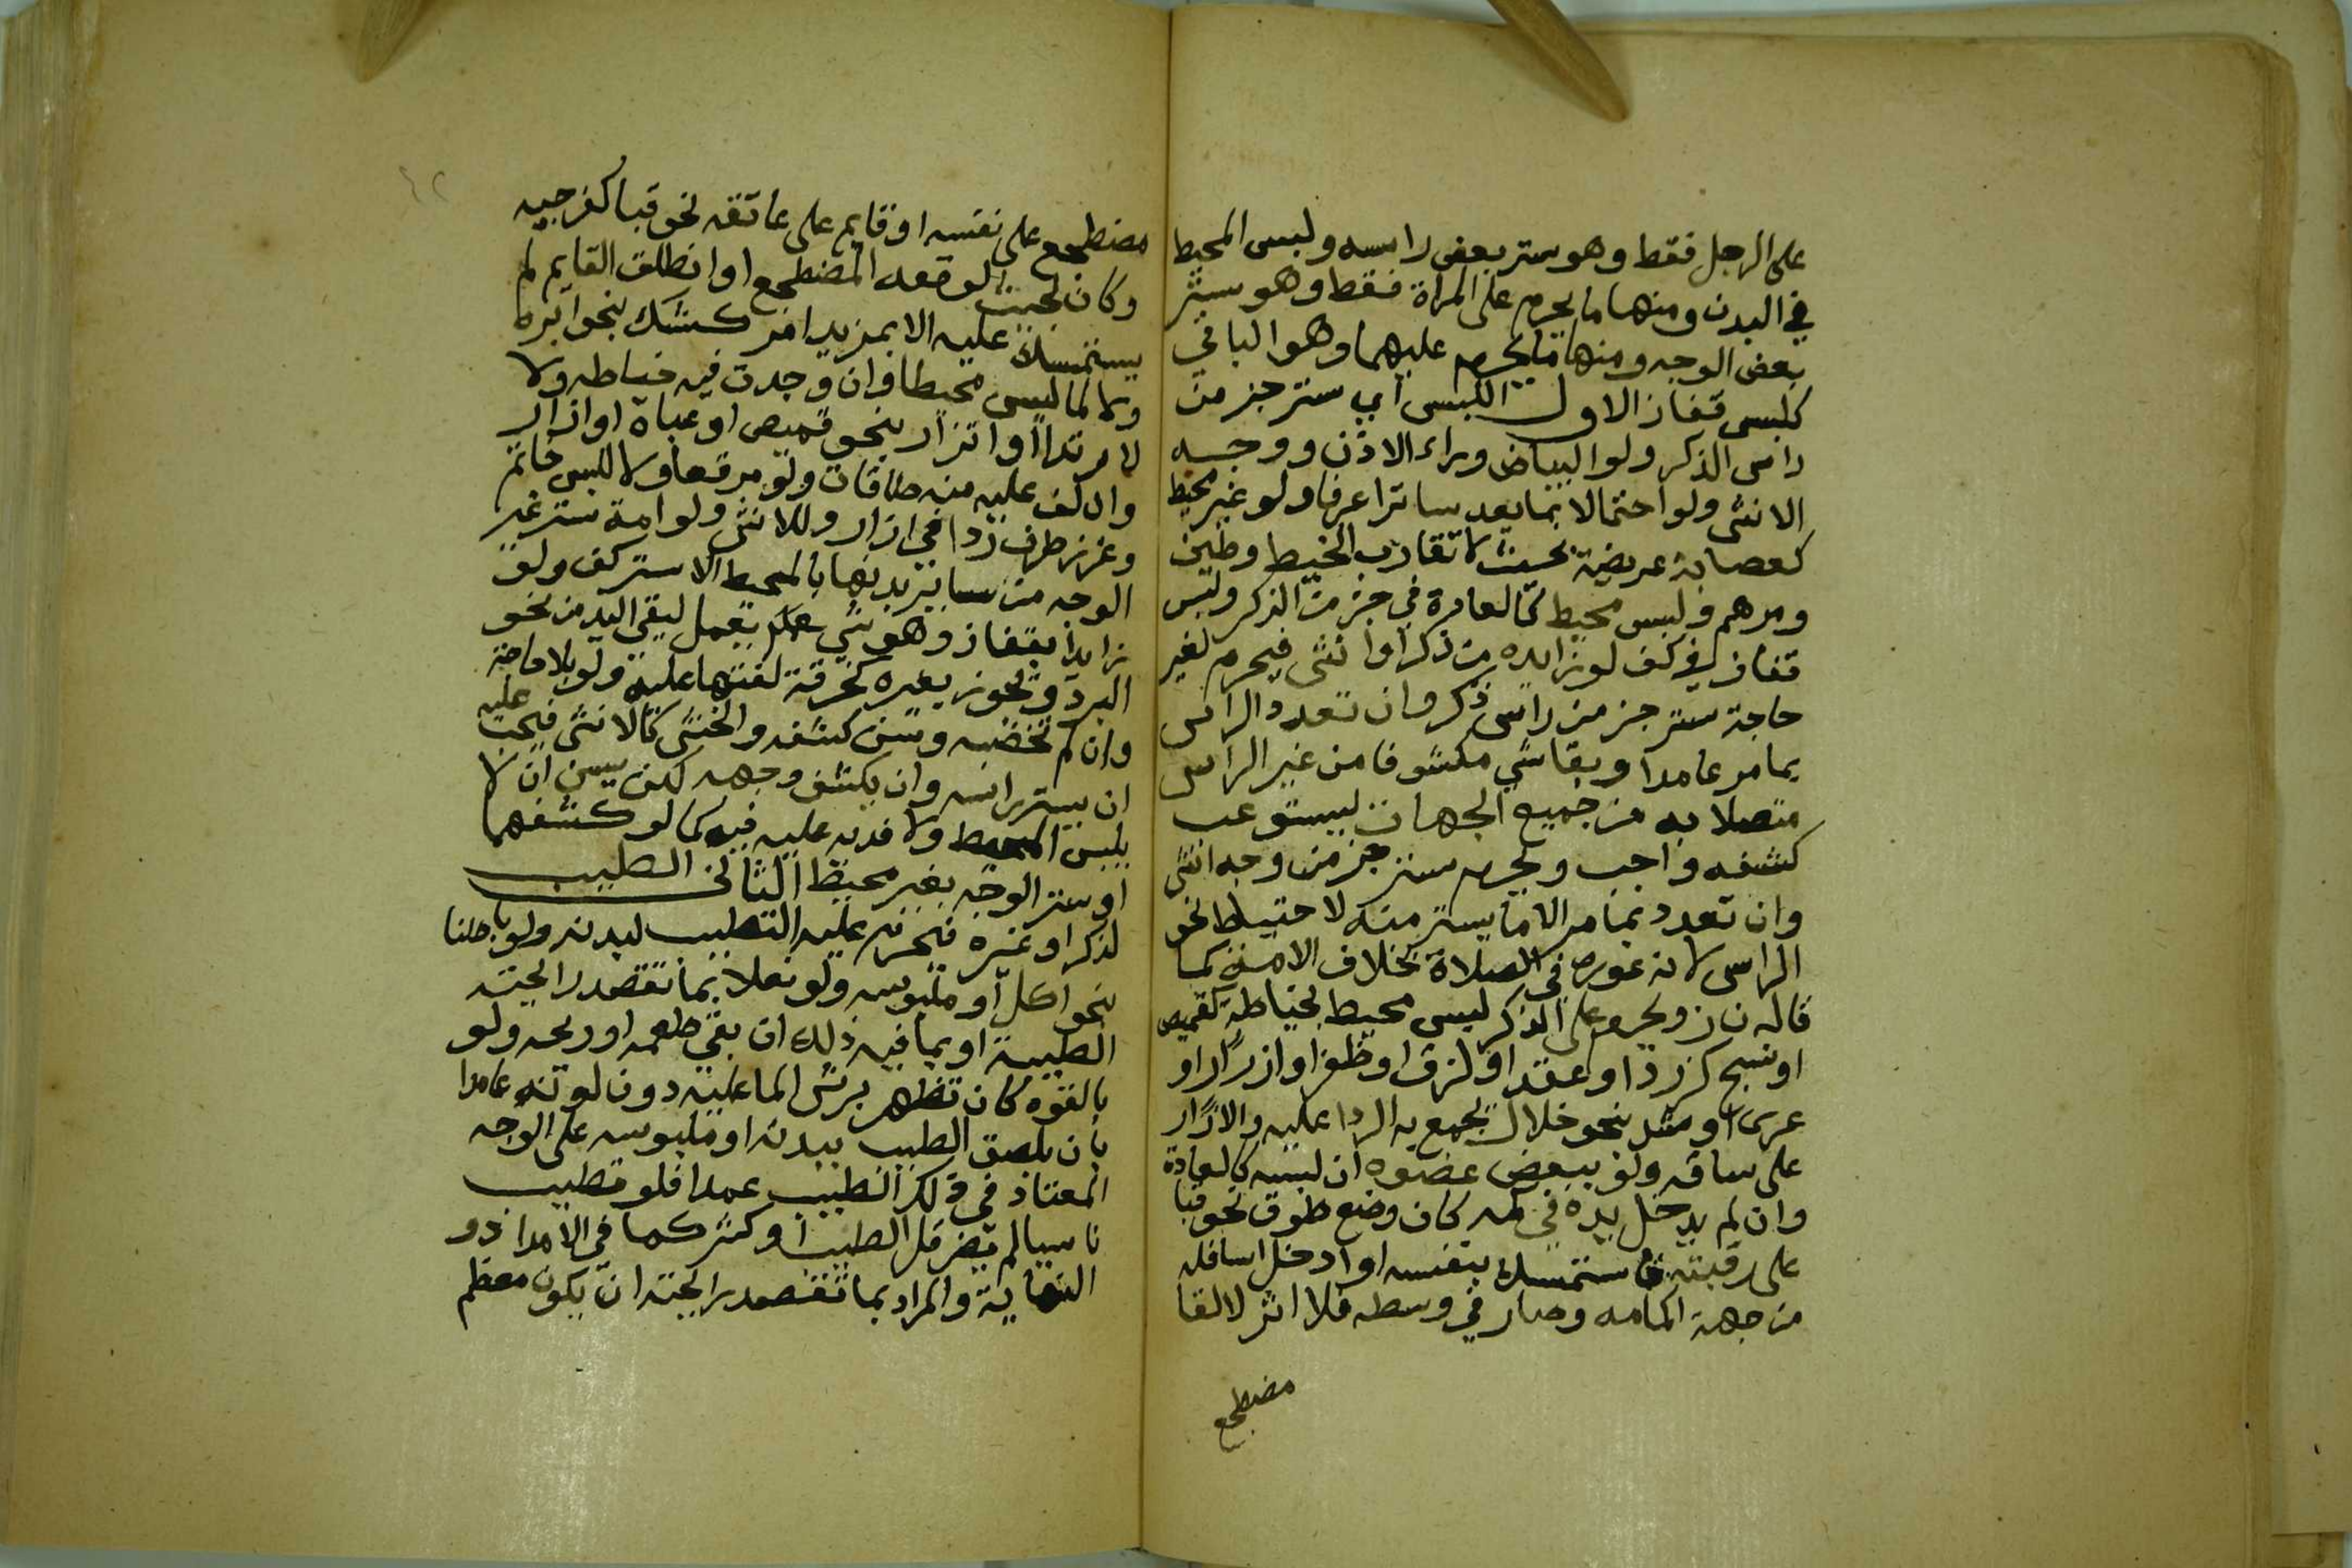 على الرجل فقط وهو ستر بعض راسه ولبس المحيط
في البدن ومنها ما يحرم على المراة فقط وهو ستر
بعض الوجه ومنها ما يحرم عليهما وهو الباقي
كلبس قفاز الاول اللبس اي ستر جز من
راس الذكر ولو البياض وراء الاذن ووجه
الانثى ولو احتمالا بما يعد ساترا عرفا ولو غير محيط
كعصابة عريضة بحيث لا تقارب الخيط وطين
ومرهم ولبس محيط كالعادة في جز من الذكر ولبس
قفاز في كف لو زايده من ذكر او انثى فيحرم لغير
حاجة ستر جز من راس ذكر وان تعدد الراس
بما مر عامدا وبقا شي مكشوفا من غير الراس
متصلا به من جميع الجهات ليستوعب
كشفه واجب ويحرم ستر جز من وجه انثى
وان تعدد بما مر الا ما يستر منه لاحتياط نحو
الراس لانه عورة في الصلاة بخلاف الامة كما
قاله ن ز ويحرم على الذكر لبس محيط بخياطة كقميص
او نسج كزرد او عقد او لزق او ظفر او ازرار او
عرى او شد نحو خلال يجمع به الردا عليه والازار
على ساقه ولو ببعض عضوه ان لبسه كالعادة
وان لم يدخل يده في كمه كان وضع طوق نحو قبا
على رقبته فاستمسك بنفسه او ادخل اسافله
من جهة اكمامه وصار في وسطه فلا اثر لالقا
مضطجع
مضطجع على نفسه او قايم على عاتقه نحو قبا كفرجيه
وكان بحيث لو قعد المضطجع او انطلق القايم لم
يستمسك عليه الا بمزيد امر كشك بنحو ابره
ولا لما ليس محيطا وان وجدت فيه خياطه ولا
لارتدا او اتزار بنحو قميص او عباة او ازار
وان لف عليه منه طاقات ولو مرقعا ولا للبس خاتم
وغرز طرف ردا في ازار وللانثى ولو امة ستر غير
الوجه من ساير بدنها بالمحيط الا ستر كف ولو
زايدا بقفاز وهو شي يعمل ليقي اليد من نحو
البرد ويجوز بغيره كخرقة لفتها عليه ولو بلا حاجة
وان لم تخضبه وسن كشفه والخنثى كالانثى فيجب عليه
ان يستر راسه وان يكشف وجهه لكن يسن ان لا
يلبس المحيط ولا فدية عليه فيه كما لو كشفهما
او ستر الوجه بغير محيط الثاني الطيب
لذكر او غيره فيحرم عليه التطيب لبدنه ولو باطنا
بنحو اكل او ملبوسه ولو نعلا بما تقصد رايحته
الطيبة او بما فيه ذلك ان بقي طعمه او ريحه ولو
بالقوه كان تظهر برش الما عليه دون لونه عامدا
بان يلصق الطيب ببدنه او ملبوسه على الوجه
المعتاد في ذلك الطيب عمدا فلو تطيب
ناسيا لم يضر قل الطيب او كثر كما في الامداد و
النهاية والمراد بما تقصد رايحته ان يكون معظم